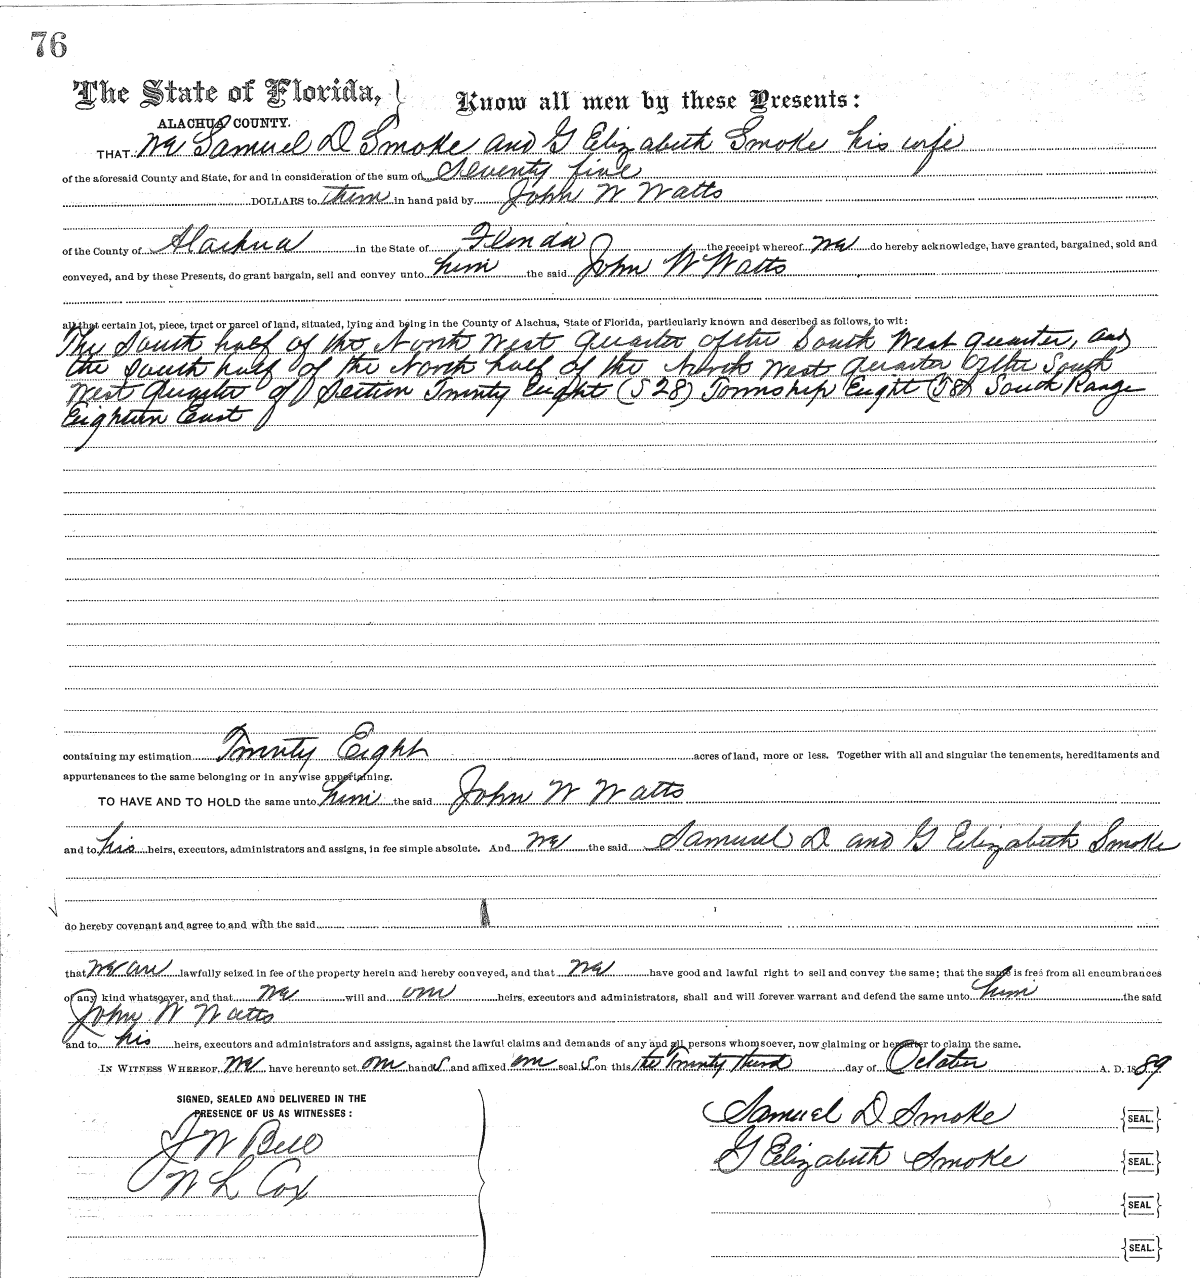 76
The State of Florida, } Know all men by these Presents:
ALACHUA COUNTY.
THAT We Samuel D Smoke and G Elizabeth Smoke his wife
of the aforesaid County and State, for and in consideration of the sum of Seventy five
DOLLARS to them in hand paid by John W Watts
of the County of Alachua in the State of Florida the receipt whereof we do hereby acknowledge, have granted, bargained, sold and
conveyed, and by these Presents, do grant bargain, sell and convey unto him the said John W Watts
all that certain lot, piece, tract or parcel of land, situated, lying and being in the County of Alachua, State of Florida, particularly known and described as follows, to wit:
The South half of the North West quarter of the South West quarter, and
the South half of the North half of the North West quarter of the South
West Quarter of Section Twenty Eight (S 28) Township Eight (T8) South Range
Eighteen East
containing my estimation Twenty Eight acres of land, more or less. Together with all and singular the tenements, hereditaments and
appurtenances to the same belonging or in anywise appertaining.
TO HAVE AND TO HOLD the same unto him the said John W Watts
and to his heirs, executors, administrators and assigns, in fee simple absolute. And we the said Samuel D and G Elizabeth Smoke
do hereby covenant and agree to and with the said
that we are lawfully seized in fee of the property herein and hereby conveyed, and that we have good and lawful right to sell and convey the same; that the same is free from all encumbrances
of any kind whatsoever, and that we will and our heirs, executors and administrators, shall and will forever warrant and defend the same unto him the said
John W Watts
and to his heirs, executors and administrators and assigns, against the lawful claims and demands of any and all persons whomsoever, now claiming or hereafter to claim the same.
IN WITNESS WHEREOF We have hereunto set our hands and affixed our seals on this the Twenty third day of October A. D. 1889
SIGNED, SEALED AND DELIVERED IN THE
PRESENCE OF US AS WITNESSES:
J W Bell
W L Cox
Samuel D Smoke {SEAL.}
G Elizabeth Smoke {SEAL.}
{SEAL}
{SEAL.}